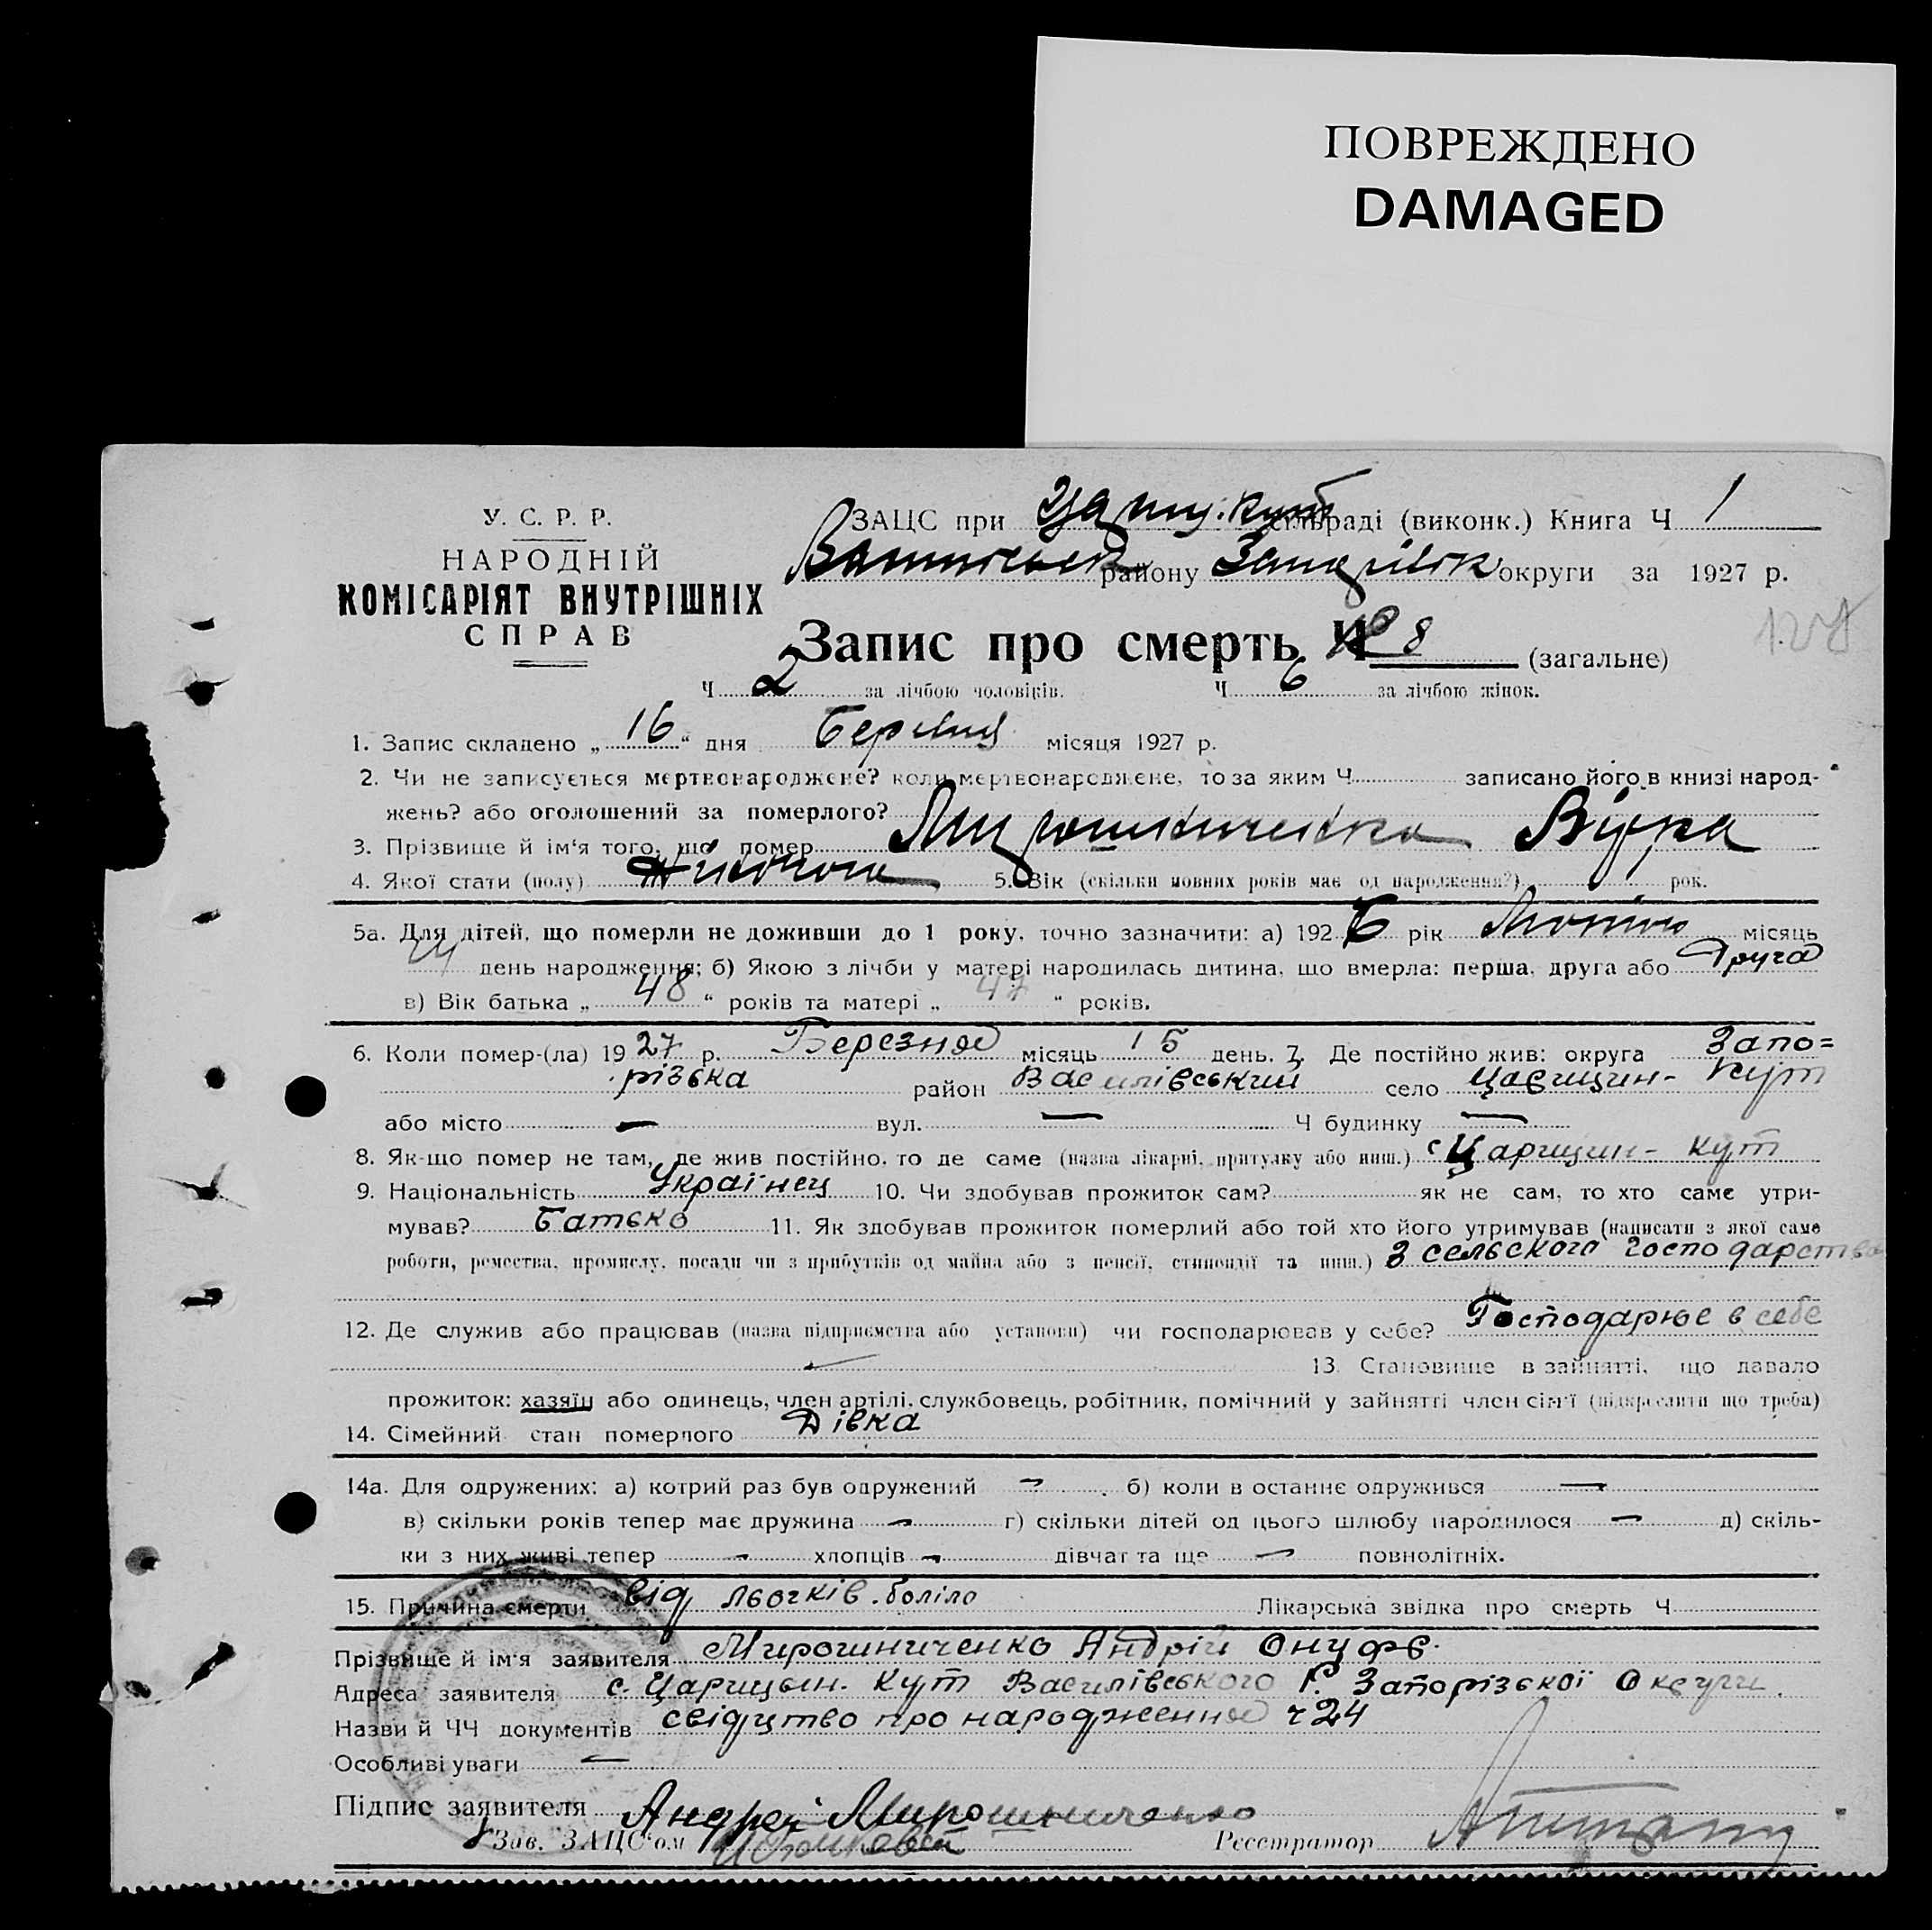 ПОВРЕЖДЕНО
DAMAGED
У. С. Р. Р.
НАРОДНІЙ
КОМІСАРІЯТ ВНУТРІШНІХ
СПРАВ
ЗАЦС при сільраді (виконк.) Книга Ч 1
району округи за 1927 р.
Запис про смерть Ч 8 (загальне)
Ч 2 за лічбою чоловіків. Ч 6 за лічбою жінок.
1. Запис складено „ 16 “ дня місяця 1927 р.
2. Чи не записується мертвонароджене? коли мертвонароджене, то за яким Ч записано його в книзі народ-
жень? або оголошений за померлого?
3. Прізвище й ім'я того, що помер Мирошниченко Вірка
4. Якої стати (полу) 5. Вік (скільки повних років має од народження?) рок.
5а. Для дітей, що померли не доживши до 1 року, точно зазначити: а) 192 6 рік місяць
день народження; б) Якою з лічби у матері народилась дитина, що вмерла: перша, друга або Друга
в) Вік батька „ 48 “ років та матері „ 47 “ років.
6. Коли помер-(ла) 19 27 р. Березня місяць 15 день. 7. Де постійно жив: округа Запо=
різька район Василівський село Царицин- Кут
або місто — вул. — Ч будинку —
8. Як-що помер не там, де жив постійно, то де саме (назва лікарні, притулку або инш.) с Царицин- Кут
9. Національність Українец 10. Чи здобував прожиток сам? як не сам, то хто саме утри-
мував? Батько 11. Як здобував прожиток померлий або той хто його утримував (написати з якої саме
роботи, ремества, промислу, посади чи з прибутків од майна або з пенсії, стипендії та инш.) З сельского господарства
12. Де служив або працював (назва підприємства або установи) чи господарював у себе? Господарює в себе
13. Становище в зайнятті, що давало
прожиток: хазяїн або одинець, член артілі, службовець, робітник, помічний у зайнятті член сім'ї (підкреслити що треба)
14. Сімейний стан померлого Дівка
14а. Для одружених: а) котрий раз був одружений - б) коли в останнє одружився —
в) скільки років тепер має дружина - г) скільки дітей од цього шлюбу народилося - д) скіль-
ки з них живі тепер - хлопців - дівчат та ще - повнолітніх.
15. Причина смерти від льочків. боліло Лікарська звідка про смерть Ч
Прізвище й ім'я заявителя Мирошниченко Андрій Онуфв.
Адреса заявителя с. Царицын. Кут Василівського Р. Запорізької Округи.
Назви й ЧЧ документів свідуцтво про народження ч 24
Особливі уваги —
Підпис заявителя Андрей Мирошниченко
Зав. ЗАЦС'ом Реєстратор